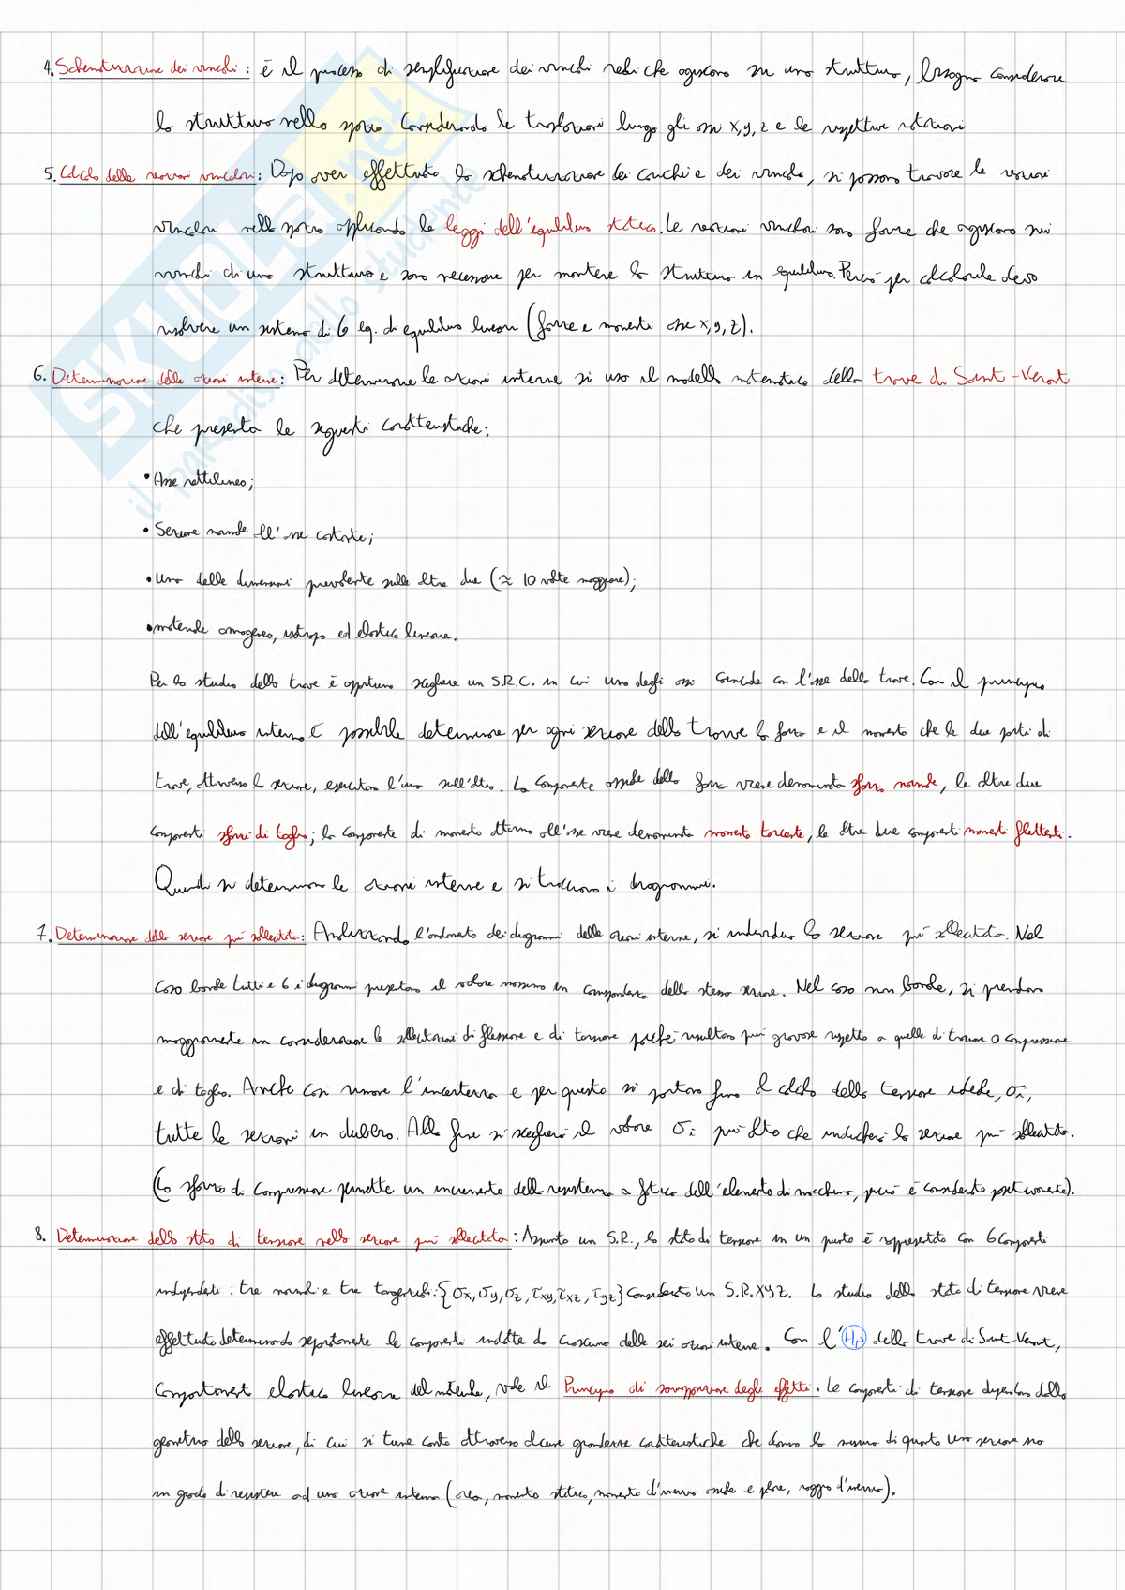 4. Schematizzazione dei vincoli: è il processo di semplificazione dei vincoli reali che agiscono su una struttura, bisogna considerare
la struttura nello spazio considerando le traslazioni lungo gli assi x, y, z e le rispettive rotazioni
5. Calcolo delle reazioni vincolari: Dopo aver effettuato la schematizzazione dei carichi e dei vincoli, si possono trovare le reazioni
vincolari nello spazio applicando le leggi dell'equilibrio statico. Le reazioni vincolari sono forze che agiscono sui
vincoli di una struttura e sono necessarie per mantenere la struttura in equilibrio. Perciò per calcolarle devo
risolvere un sistema di 6 eq. di equilibrio lineari (forze e momenti asse x, y, z).
6. Determinazione delle azioni interne: Per determinare le azioni interne si usa il modello matematico della trave di Saint-Venant
che presenta le seguenti caratteristiche:
• Asse rettilineo;
• Sezione normale all'asse costante;
• Una delle dimensioni prevalente sulle altre due (≈ 10 volte maggiore);
• materiale omogeneo, isotropo ed elastico lineare.
Per lo studio della trave è opportuno scegliere un S.R.C. in cui uno degli assi coincide con l'asse della trave. Con il principio
dell'equilibrio interno è possibile determinare per ogni sezione della trave la forza e il momento che le due parti di
trave, attraverso la sezione, esercitano l'una sull'altra. La componente assiale della forza viene denominata sforzo normale, le altre due
componenti sforzi di taglio; la componente di momento attorno all'asse viene denominata momento torcente, le altre due componenti momenti flettenti.
Quindi si determinano le azioni interne e si tracciano i diagrammi.
7. Determinazione della sezione più sollecitata: Analizzando l'andamento dei diagrammi delle azioni interne, si individua la sezione più sollecitata. Nel
caso banale tutti e 6 i diagrammi presentano il valore massimo in corrispondenza della stessa sezione. Nel caso non banale, si prendono
maggiormente in considerazione le sollecitazioni di flessione e di torsione perché risultano più gravose rispetto a quelle di trazione o compressione
e di taglio. Anche così rimane l'incertezza e per questo si portano fino al calcolo della tensione ideale, σi,
tutte le sezioni in dubbio. Alla fine si sceglierà il valore σi più alto che indicherà la sezione più sollecitata.
(Lo sforzo di compressione permette un incremento della resistenza a fatica dell'elemento di macchina, perciò è considerato positivamente).
8. Determinazione dello stato di tensione nella sezione più sollecitata: Assunto un S.R., lo stato di tensione in un punto è rappresentato con 6 componenti
indipendenti: tre normali e tre tangenziali: {σx, σy, σz, τxy, τxz, τyz} considerato un S.R. XYZ. Lo studio dello stato di tensione viene
effettuato determinando separatamente le componenti indotte da ciascuna delle sei azioni interne. Con l'Hp della trave di Saint-Venant,
comportamento elastico lineare del materiale, vale il Principio di sovrapposizione degli effetti. Le componenti di tensione dipendono dalla
geometria della sezione, di cui si tiene conto attraverso alcune grandezze caratteristiche che danno la misura di quanto una sezione sia
in grado di resistere ad una azione interna (area, momento statico, momento d'inerzia assiale e polare, raggio d'inerzia).
SKUOLA.net
il paradiso dello studente